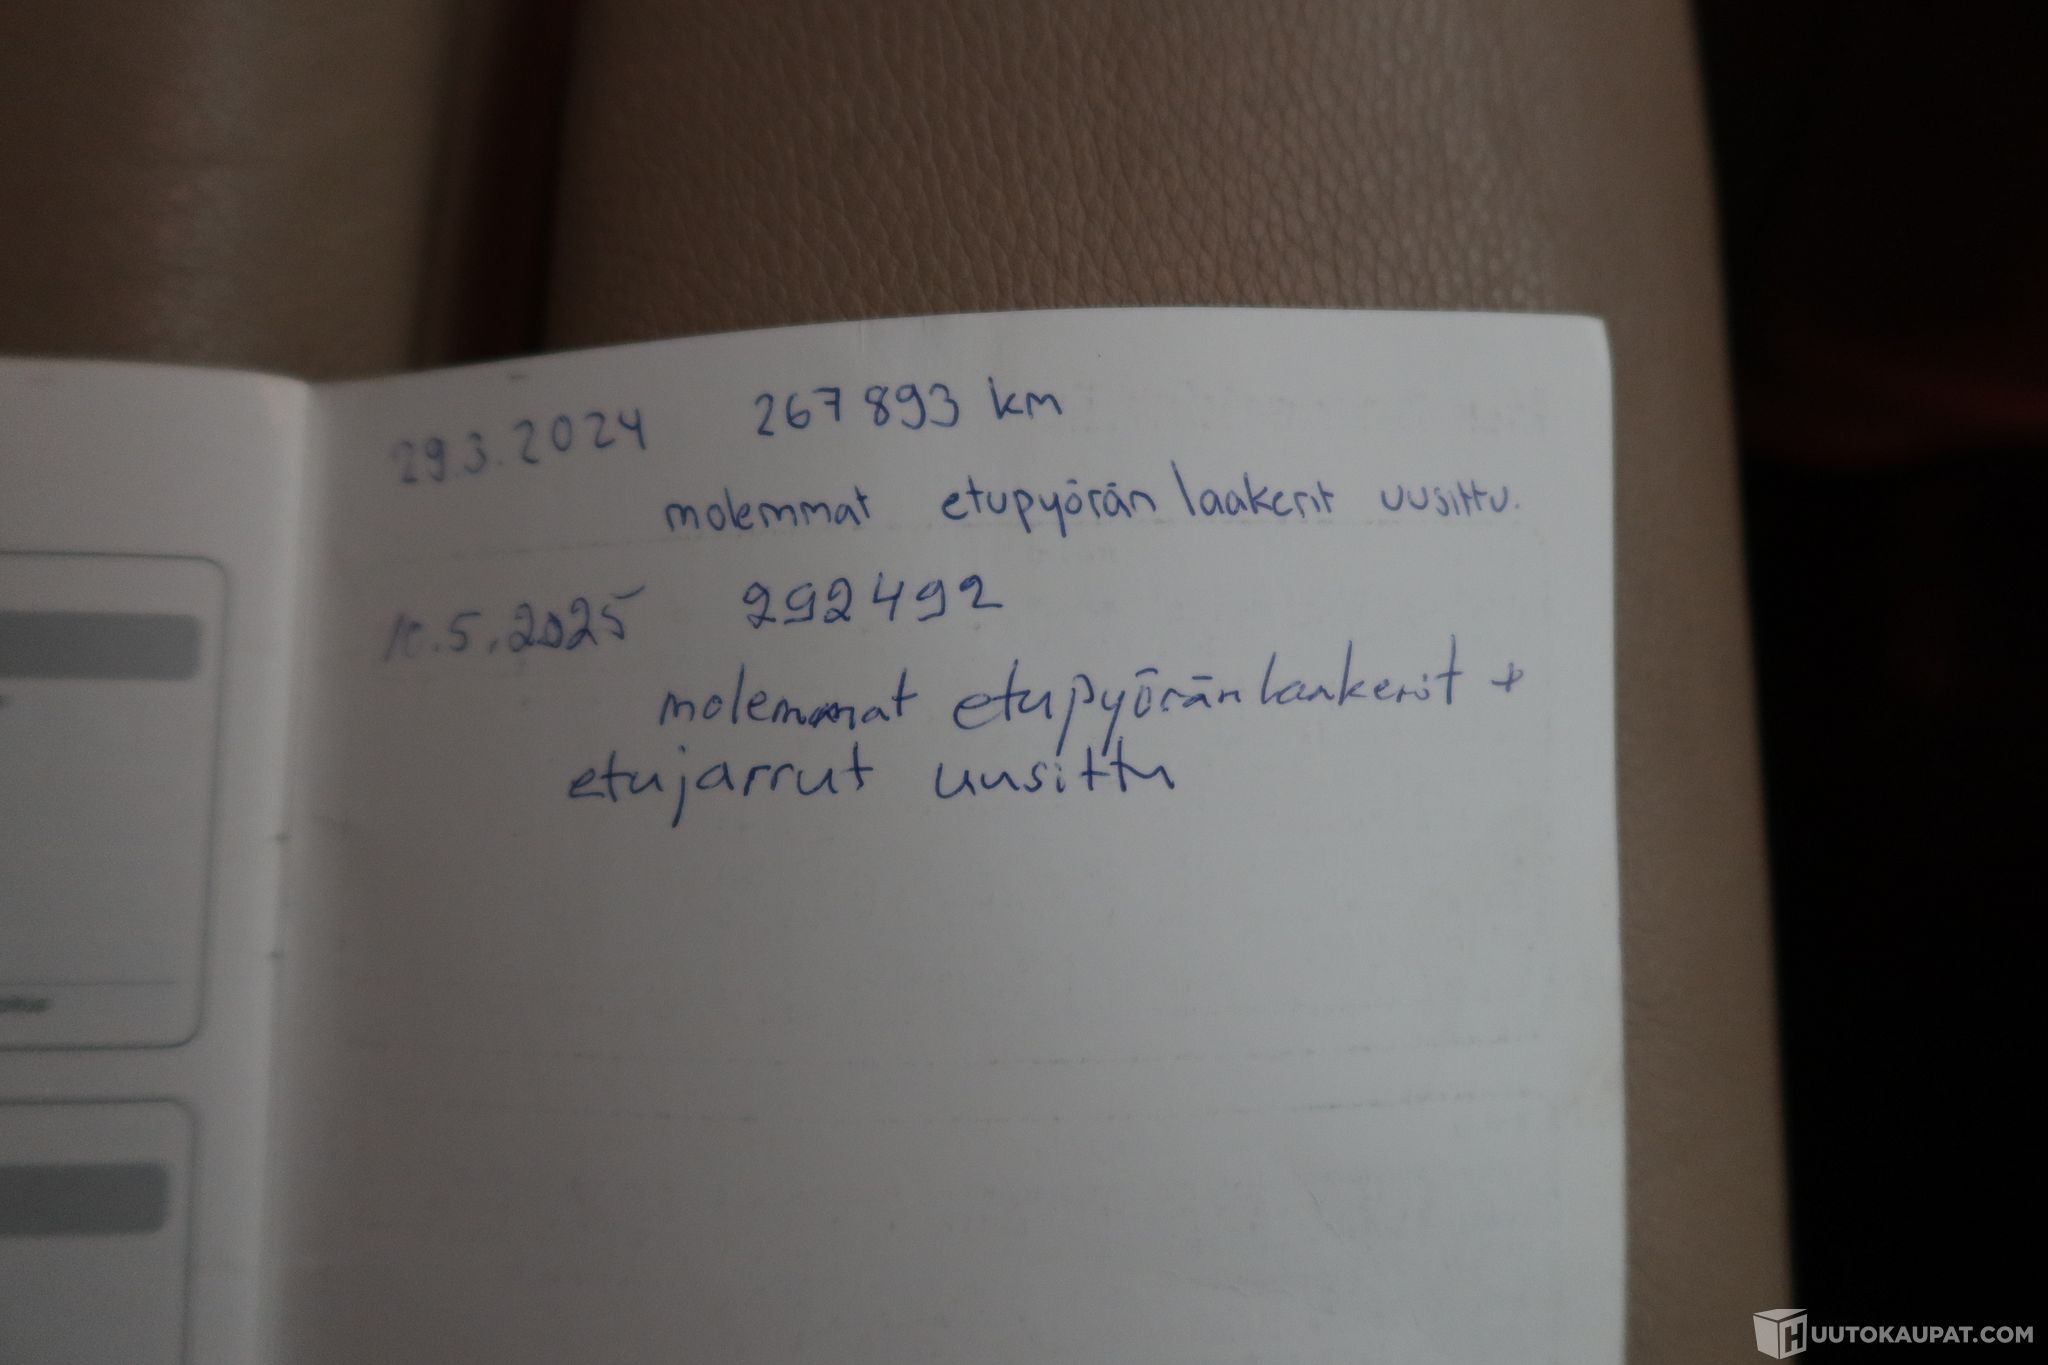 29.3.2024 267 893 km
molemmat etupyörän laakerit uusittu.
10.5.2025 292492
molemmat etupyöränlaakerit +
etujarrut uusittu
HUUTOKAUPAT.COM